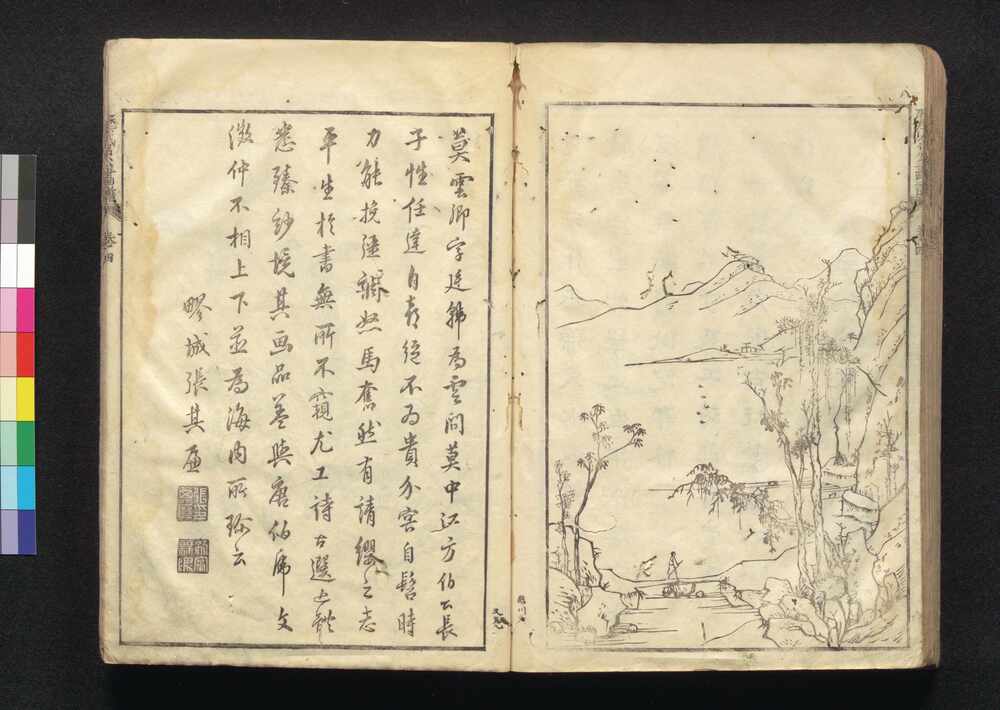 莫雲卿字廷韓為雲間莫中江方伯公長
子性任達自喜絕不為貴介容自髫時
力能挽強躍怒馬奮然有請纓之志
平生於書無所不窺尤工詩古選近體
悉臻妙境其画品益與唐伯虎文
徵仲不相上下並為海內所珍云
畷城張其
卷四